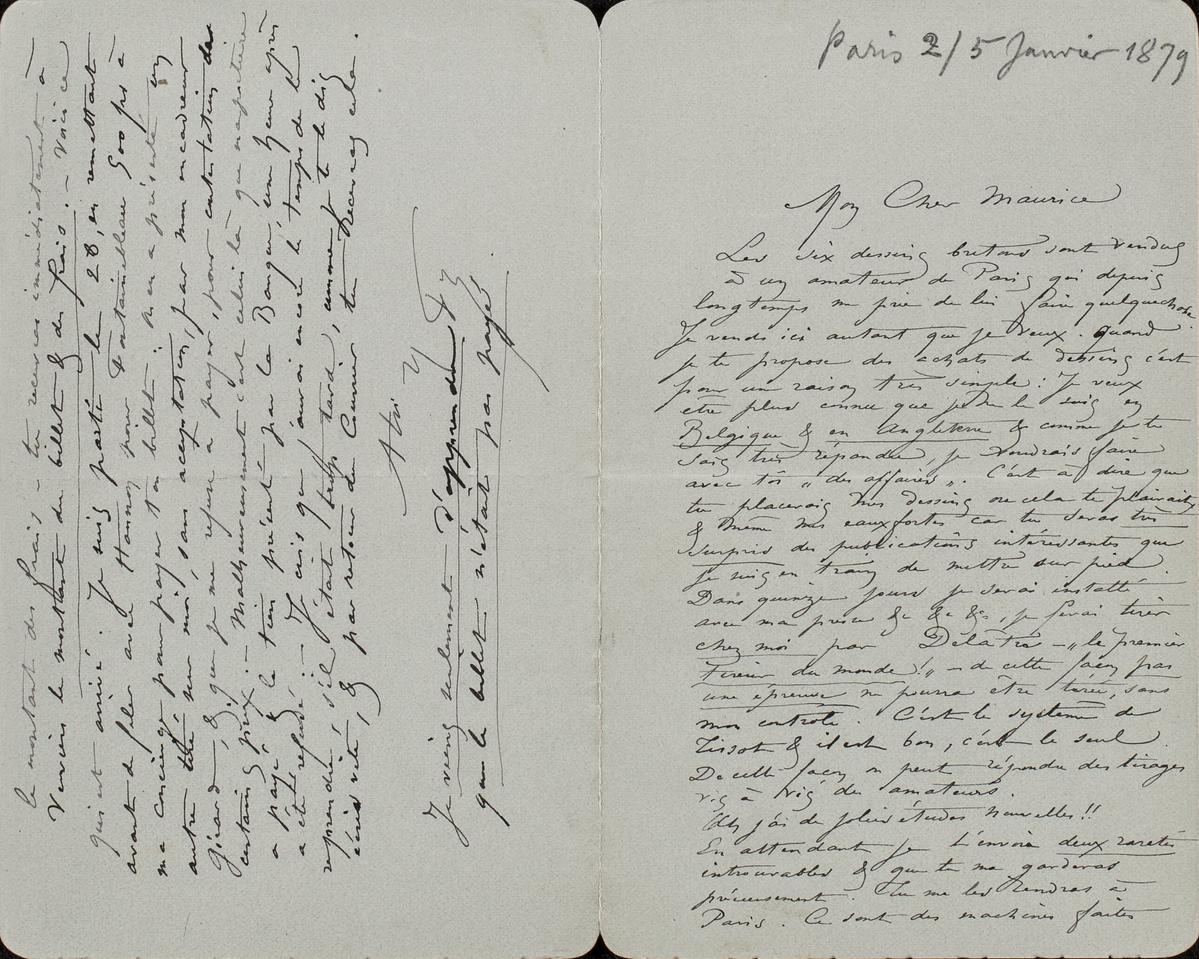 Paris 2/5 Janvier 1879
Mon Cher Maurice
Les six dessins bretons sont vendus
à un amateur de Paris qui depuis
longtemps me prie de lui faire quelquechose
Je vends ici autant que je veux. Quand
je te propose des achats de dessins c'est
pour une raison très simple : Je veux
être plus connu que je ne le suis en
Belgique & en Angleterre & comme je te
sais très répandu, je voudrais faire
avec toi „ des affaires „. C'est à dire que
tu placerais mes dessins où cela te plairait,
& même mes eauxfortes car tu seras très
surpris des publications intéressantes que
je suis en train de mettre sur pied.
Dans quinze jours je serai installé
avec ma presse &c &c &c, je ferai tirer
chez moi par Delâtre – „ le premier
tireur du monde ! „ – de cette façon pas
une épreuve ne pourra être tirée, sans
mon controle. C'est le système de
Tissot & il est bon, c'est le seul.
De cette façon on peut répondre des tirages
vis à vis des amateurs.
Oh j'ai de jolies études nouvelles !!
En attendant je t'envoie deux raretés
introuvables & que tu me garderas
précieusement. Tu me les rendras à
Paris. Ce sont des machines faites
le montant des frais – tu recevras immédiatement à
Verviers le montant du billet & des frais. – Voici ce
qui est arrivé : Je suis parti le 28, en remettant
avant de filer avec Hannon pour Fontainebleau 500 frs à
ma concierge pour payer ton billet : On en a présenté un
autre tiré sur moi, sans acceptation, par mon encadreur
Girard, & que je me refuse à payer, pour contestation de
certains prix : – Malheureusement c'est celui là que ma portière
a payé & le tien présenté par la Banque, une heure après
a été refusé ; – Je crois que j'aurai encore le temps de le
reprendre, s'il était trop tard, comme je te le dis
écris vite, & par retour du Courrier tu recevras cela.
A toi
Je viens seulement d'apprendre
que le billet n'était pas payé.